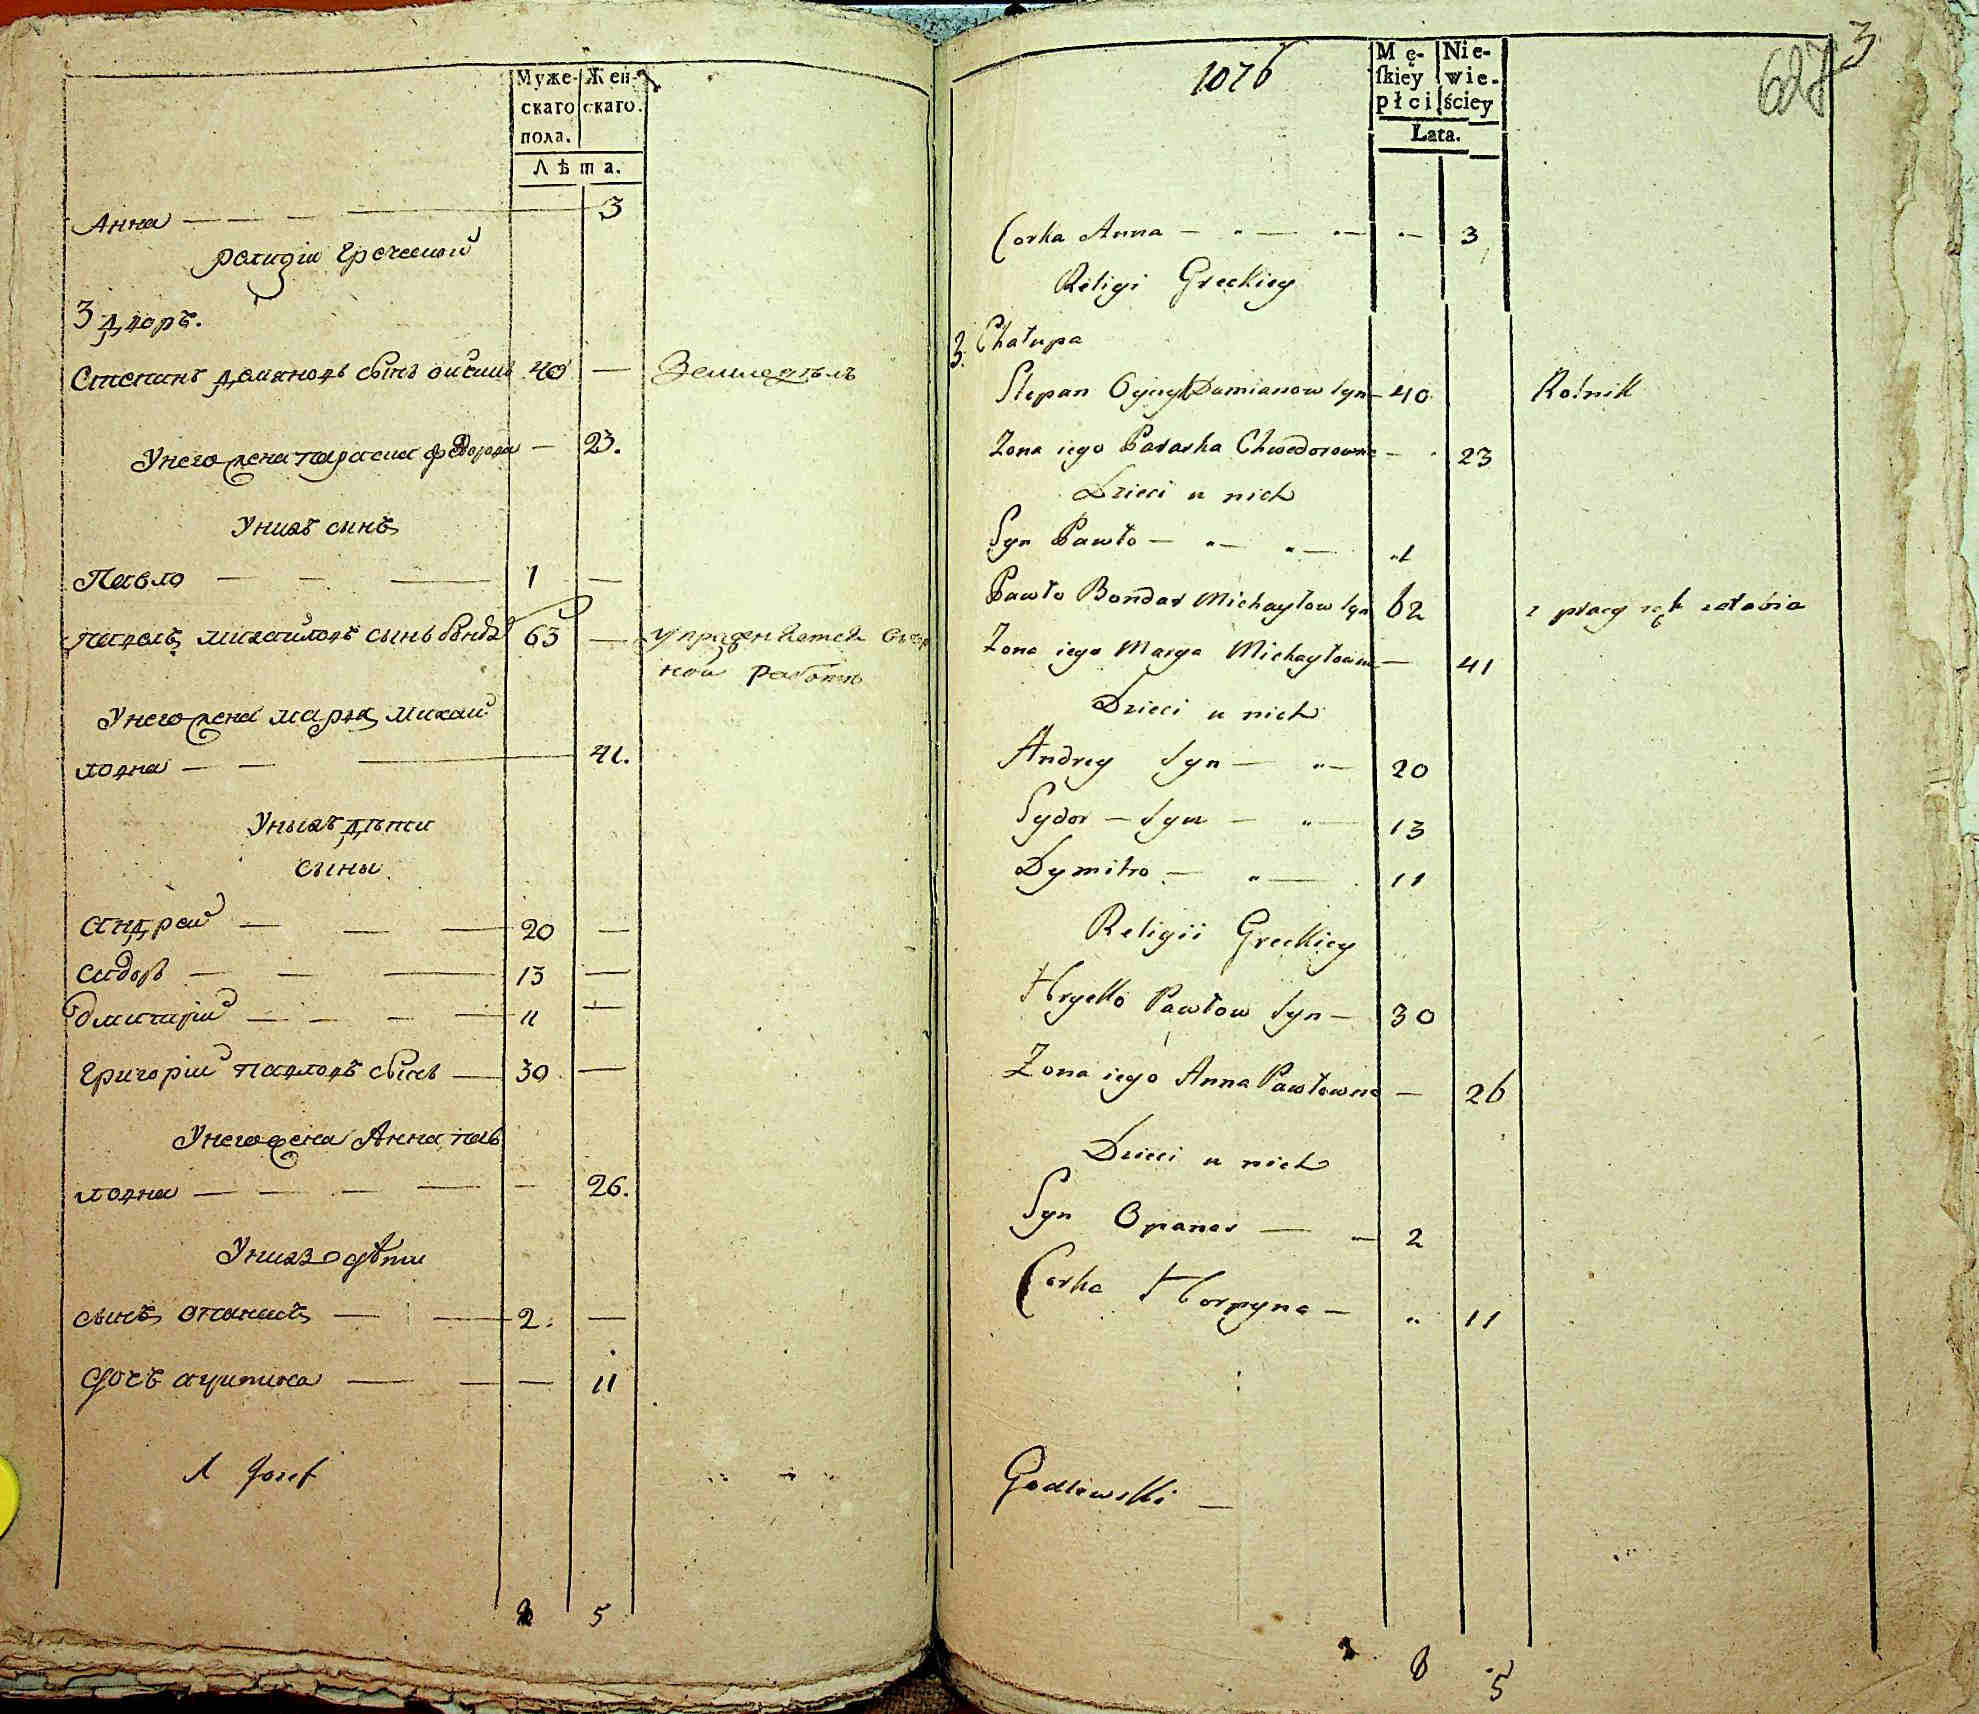 Муже-
скаго
пола.
Жен-
скаго.
Лѣта.
Анна — — — — 3
религіи Греческой
3 дворъ.
Степанъ Демяновъ сынъ 40 — Земледѣлъ
У него жена Параска Федорова — 23.
У нихъ сынъ
Павло — — — 1 —
Павелъ Михайловъ сынъ Бондар 63 — упражняется
ной работы
У него жена Маря Михай
ловна — — — 41.
У нихъ дѣти
сыны
Андрей — — — 20 —
Сидоръ — — — 13 —
Дмитрій — — — — 11 —
Григорій Павловъ сынъ — 30 —
У него жена Анна Пав
ловна — — — — — 26.
У нихъ дѣти
сынъ Опанасъ — — 2. —
дочъ Агрипина — — — 11
A Josef
5
1076
Mę-
skiey
płci
Nie-
wie-
ściey
Lata.
627
3
Corka Anna — — — — 3
Religi Greckiey
3. Chałupa
Stepan Damianow Syn — 40 Rolnik
Zona iego Paraska Chwedorowna — 23
Dzieci u nich
Syn Pawło — — — 1
Pawło Bondar Michayłow Syn 62 z pracy rąk zarabia
Zona iego Marya Michayłowna — 41
Dzieci u nich
Andrey Syn — — 20
Sydor — Syn — — 13
Dymitro — — 11
Religii Greckiey
Hryćko Pawłow Syn — 30
Zona iego Anna Pawłowna — 26
Dzieci u nich
Syn Opanas — — 2
Corka Horpyna — 11
Godlewski —
8 5